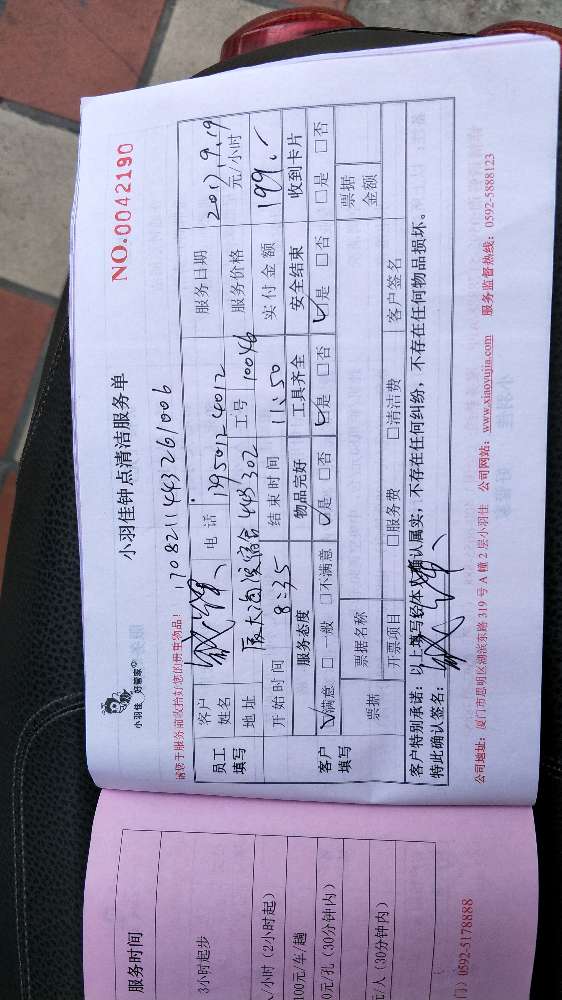 小羽佳 好管家®
小羽佳钟点清洁服务单
NO.0042190
1708211443261006
员工填写
客户姓名 电话 服务日期 2017.9.19
地址 工号 10046 服务价格 元/小时
开始时间 8:35 结束时间 11:50 实付金额 199.-
客户填写
服务态度 物品完好 工具齐全 安全结束 收到卡片
☑满意 □一般 □不满意 ☑是 □否 ☑是 □否 ☑是 □否 □是 □否
票据 票据名称 票据金额
开票项目 □服务费 □清洁费 客户签名
客户特别承诺：以上填写经本人确认属实，不存在任何纠纷，不存在任何物品损坏。
特此确认签名：
公司地址：厦门市思明区湖滨东路 319 号 A 幢 2 层小羽佳 公司网站：www.xiaoyujia.com 服务监督热线：0592-5888123
服务时间
3小时起步
/小时（2小时起）
100元/车/趟
0元/孔（30分钟内）
元/人（30分钟内）
门）0592-5178888